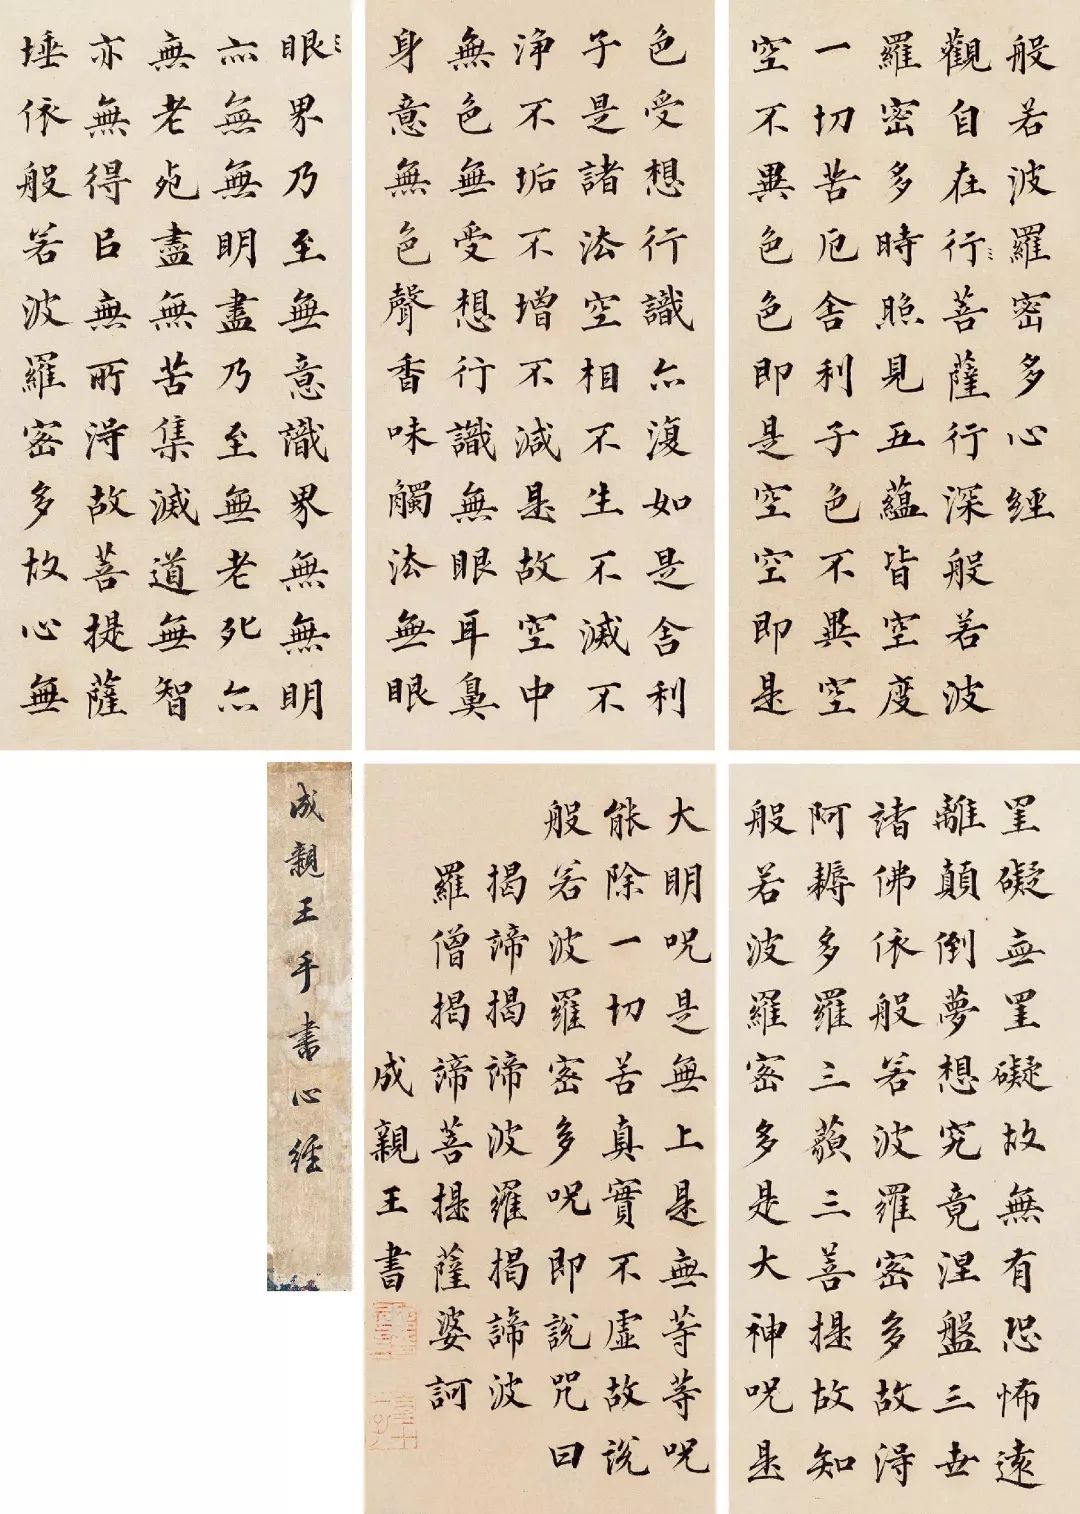 般若波羅密多心經
觀自在行菩薩行深般若波
羅密多時照見五蘊皆空度
一切苦厄舍利子色不異空
空不異色色即是空空即是
色受想行識亦復如是舍利
子是諸法空相不生不滅不
淨不垢不增不減是故空中
無色無受想行識無眼耳鼻
身意無色聲香味觸法無眼
眼界乃至無意識界無無明
亦無無明盡乃至無老死亦
無老死盡無苦集滅道無智
亦無得以無所得故菩提薩
埵依般若波羅密多故心無
罣礙無罣礙故無有恐怖遠
離顛倒夢想究竟涅盤三世
諸佛依般若波羅密多故得
阿耨多羅三藐三菩提故知
般若波羅密多是大神咒是
大明咒是無上是無等等咒
能除一切苦真實不虛故說
般若波羅密多咒即說咒曰
揭諦揭諦波羅揭諦波
羅僧揭諦菩提薩婆訶
成親王書
成親王手書心經